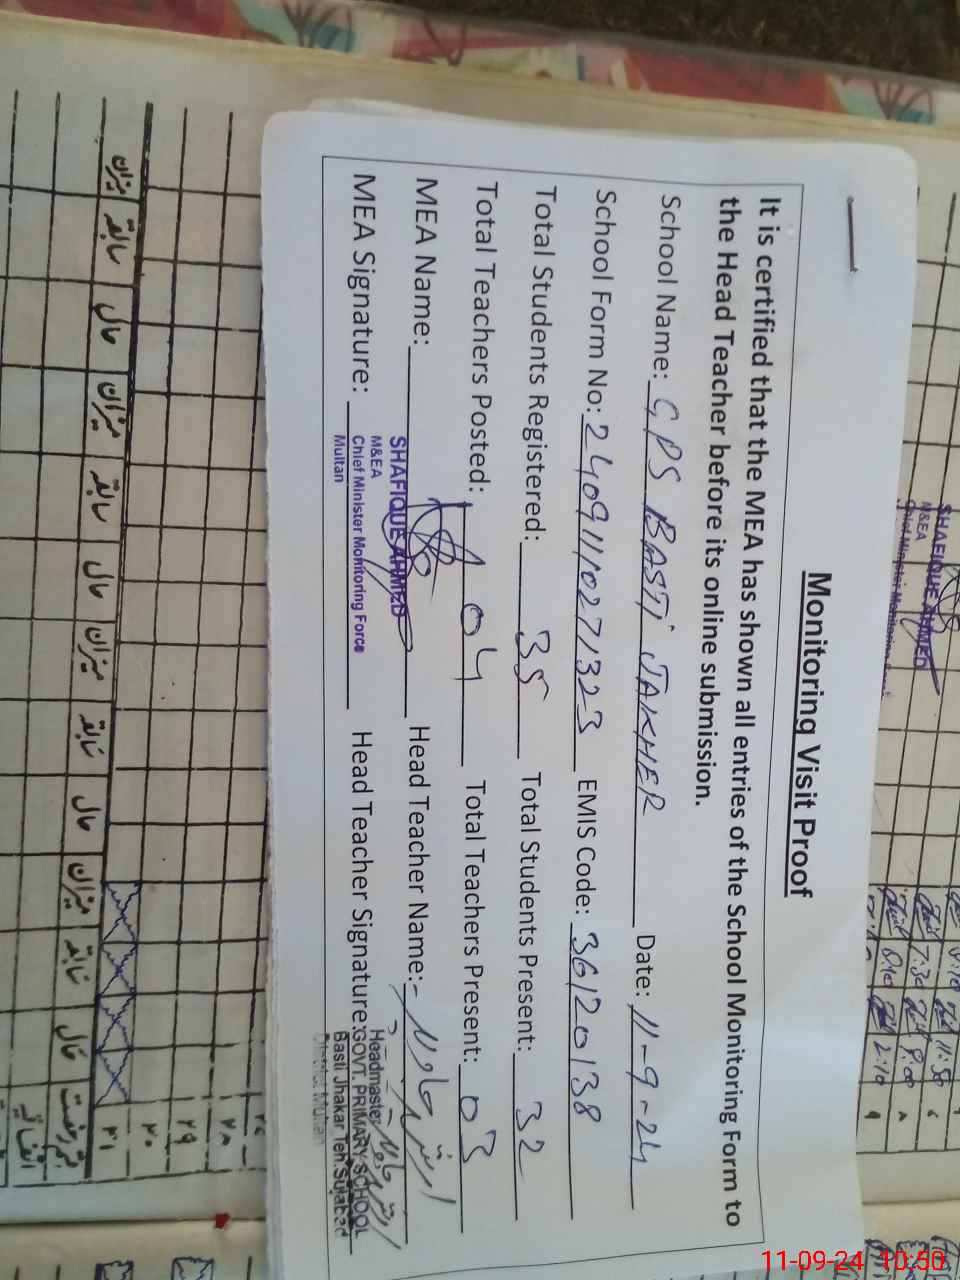 Monitoring Visit Proof
It is certified that the MEA has shown all entries of the School Monitoring Form to
the Head Teacher before its online submission.
School Name: GPS BASTI JAKHER Date: 11-9-24
School Form No: 2409110271323 EMIS Code: 36120138
Total Students Registered: 35 Total Students Present: 32
Total Teachers Posted: 04 Total Teachers Present: 03
MEA Name: Head Teacher Name:-
SHAFIQUE AHMED
M&EA
Chief Minister Monitoring Force
Multan
MEA Signature: Head Teacher Signature:
Headmaster
GOVT. PRIMARY SCHOOL
Basti Jhakar Teh. Sujabad
District Multan
SHAFIQUE AHMED
M&EA
Chief Minister Monitoring
7:30 11:50
8:00
8:10 2:10
۹
۸
۲۸
۲۹
۳۰
۳۱
میزان سابقہ حال میزان سابقہ حال میزان سابقہ حال میزان سابقہ حال
11-09-24 10:50